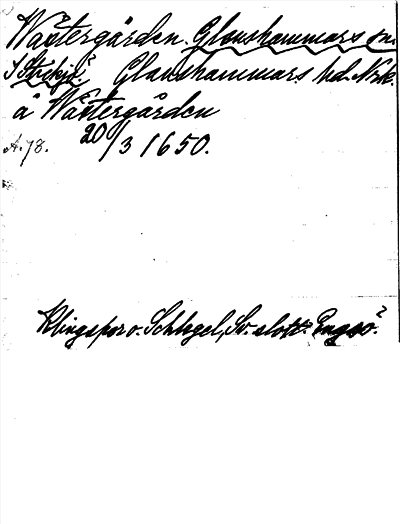 Wästergården. Glanshammars sn.
Glanshammars hd. Nrk.
å Wästergården
A. 78. 20/3 1650.
Klingspor o. Schlegel, Sv. slott. Engsö.